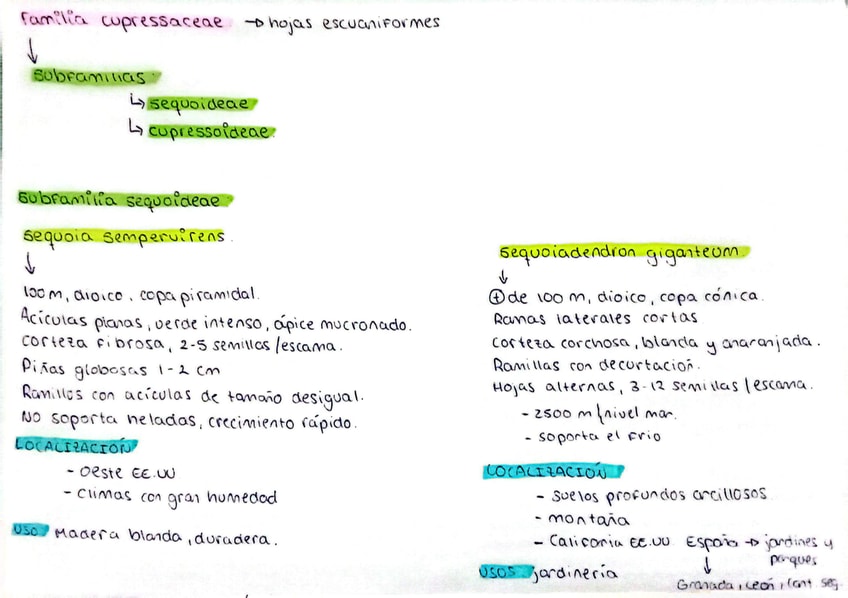 Familia cupressaceae → hojas escuaniformes
↓
Subfamilias
↳ sequoideae
↳ cupressoideae
Subfamilia sequoideae
Sequoia sempervirens.
↓
100 m, dioico, copa piramidal.
Acículas planas, verde intenso, ápice mucronado.
Corteza fibrosa, 2-5 semillas/escama.
Piñas globosas 1-2 cm
Ramillos con acículas de tamaño desigual.
No soporta heladas, crecimiento rápido.
LOCALIZACIÓN
- Oeste EE.UU
- Climas con gran humedad
USO Madera blanda, duradera.
Sequoiadendron giganteum
↓
⊕ de 100 m, dioico, copa cónica.
Ramas laterales cortas
Corteza corchosa, blanda y anaranjada.
Ramillas con decurtación.
Hojas alternas, 3-12 semillas/escama.
- 2500 m/nivel mar.
- soporta el frio
LOCALIZACIÓN
- Suelos profundos arcillosos
- montaña
- California EE.UU. España → jardines y
parques
↓
Granada, León, Cant. Seg.
USOS jardinería